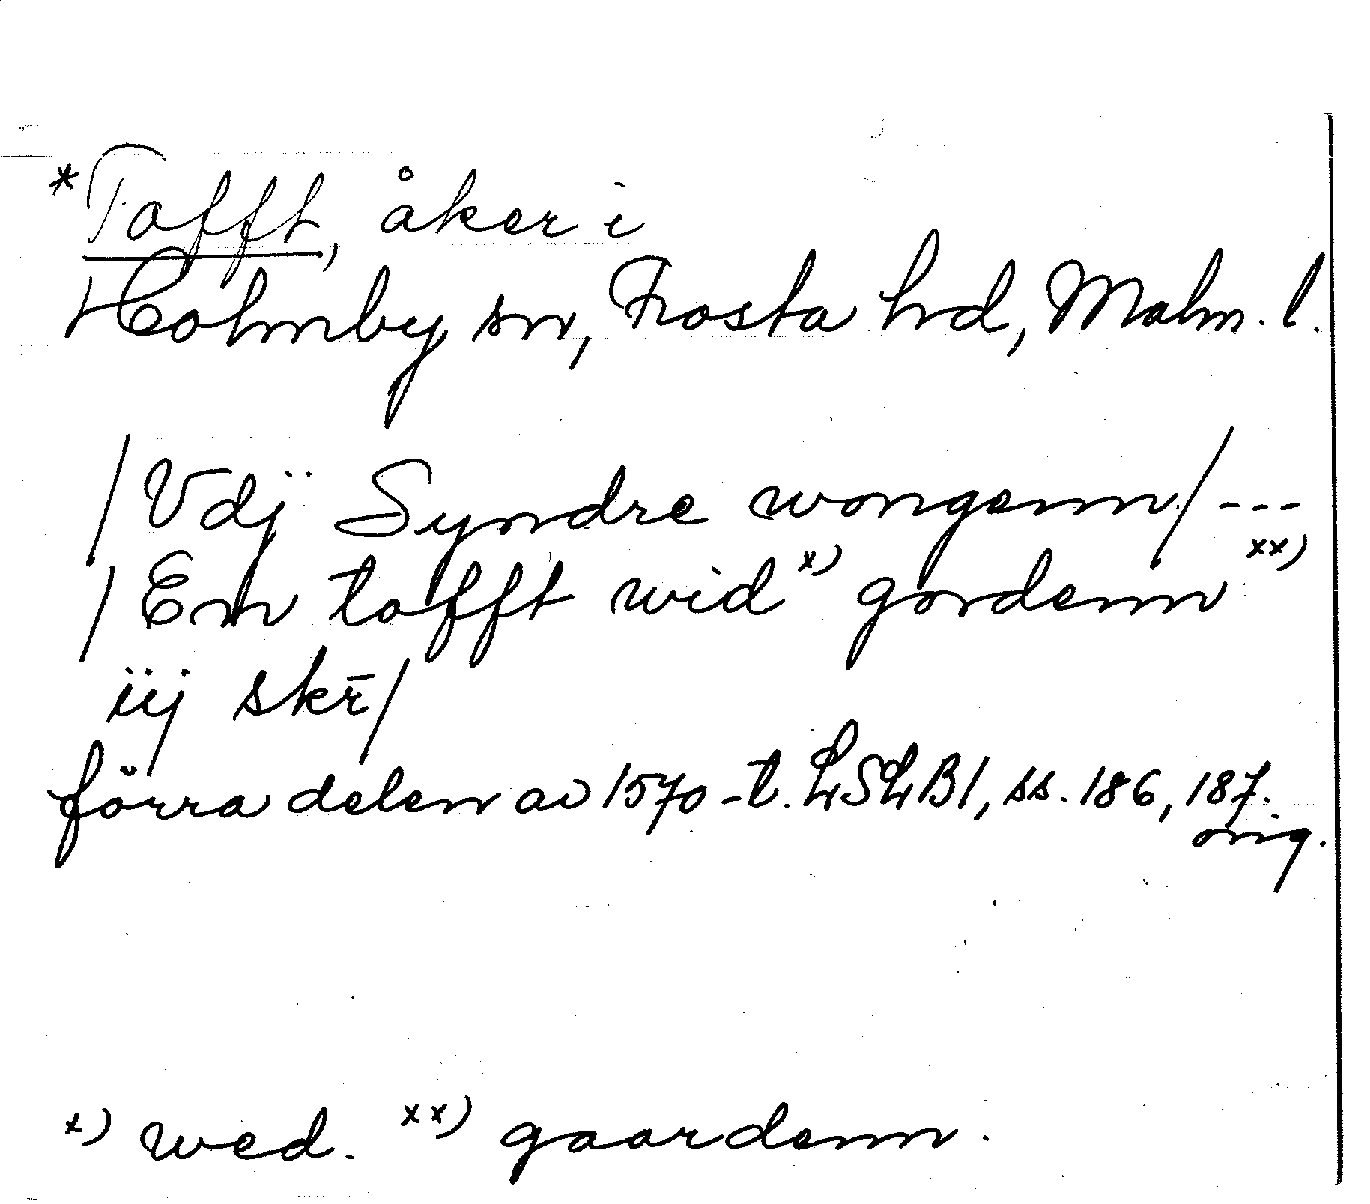 *Tofft, åker i
Holmby sn, Frosta hd, Malm. l.
/Vdj Syndre wongenn/ ---
/En tofft wid x) gordenn xx)
iij skr̄/
förra delen av 1570-t. LSLB1, ss. 186, 187.
orig.
x) wed. xx) gaardenn.